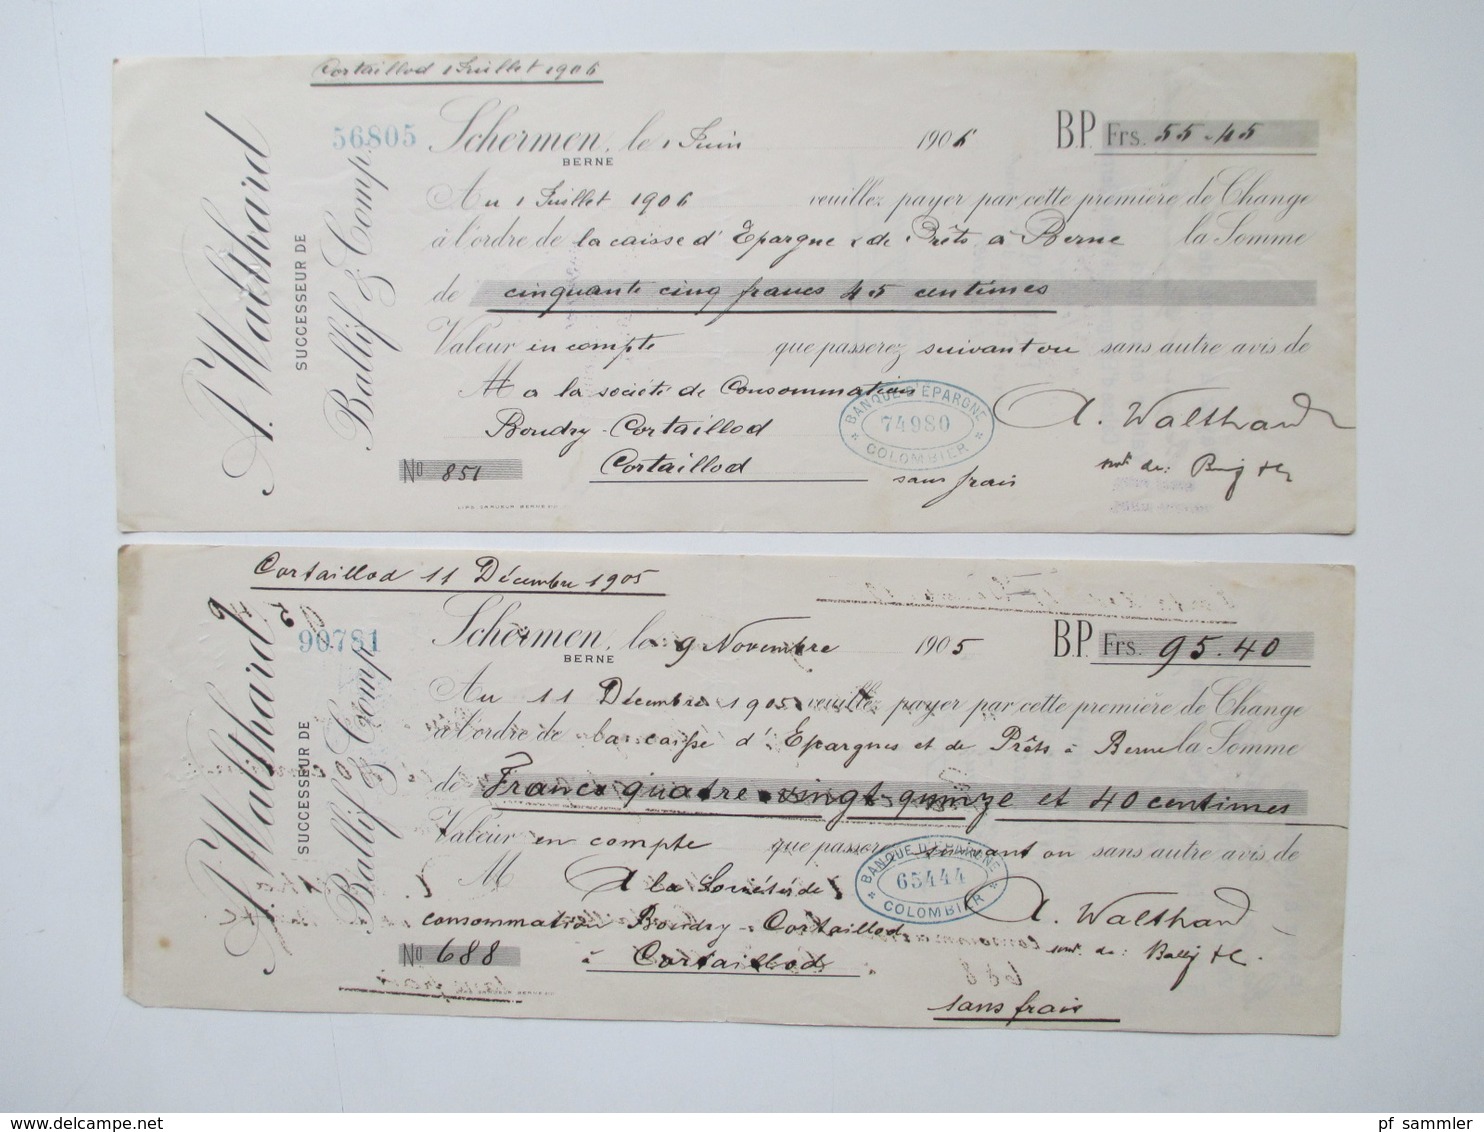 Cortaillod 1 Juillet 1906
56805
Schermen, le 1 Juin 1906 B.P. Frs. 55.45
BERNE
Au 1 Juillet 1906 veuillez payer par cette première de Change
à l'ordre de la caisse d'Epargne & de Prêts à Berne la Somme
de cinquante cinq francs 45 centimes
Valeur en compte que passerez suivant ou sans autre avis de
M a la société de Consommation
Boudry-Cortaillod
Cortaillod
No 851
sans frais
A. Walthard
BANQUE D'ÉPARGNE
74980
COLOMBIER
A. Walthard
SUCCESSEUR DE
Ballif & Comp.
Cortaillod 11 Décembre 1905
90781
Schermen, le 9 Novembre 1905 B.P. Frs. 95.40
BERNE
Au 11 Décembre 1905 veuillez payer par cette première de Change
à l'ordre de la caisse d'Epargnes et de Prêts à Berne la Somme
de Francs quatre vingt quinze et 40 centimes
Valeur en compte que passerez suivant ou sans autre avis de
M A la Société de
consommation Boudry-Cortaillod
à Cortaillod
No 688
sans frais
A. Walthard
BANQUE D'ÉPARGNE
65444
COLOMBIER
A. Walthard
SUCCESSEUR DE
Ballif & Comp.
www.delcampe.net
pf_sammler